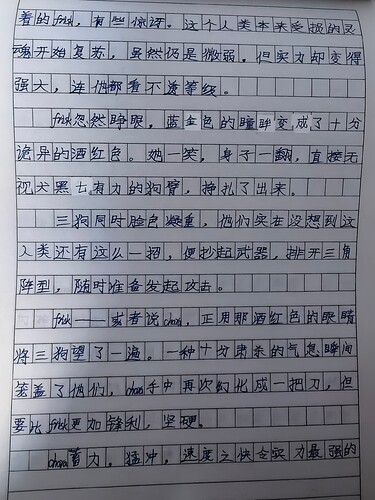 着的frisk，有些惊讶。这个人类本来受损的灵
魂开始复苏，虽然仍是微弱。但实力却变得
强大，连他都看不透等级。
frisk忽然睁眼，蓝金色的瞳眸变成了十分
诡异的酒红色。她一笑，身子一翻，直接无
视犬黑七有力的狗臂，挣扎了出来。
三狗同时脸色凝重，他们实在没想到这
人类还有这么一招，便抄起武器，排开三角
阵型，随时准备发起攻击。
frisk——或者说chara，正用那酒红色的眼睛
将三狗望了一遍。一种十分肃杀的气息瞬间
笼盖了他们，chara手中再次幻化成一把刀，但
要比frisk更加锋利，坚硬。
chara蓄力，猛冲，速度之快令实力最强的